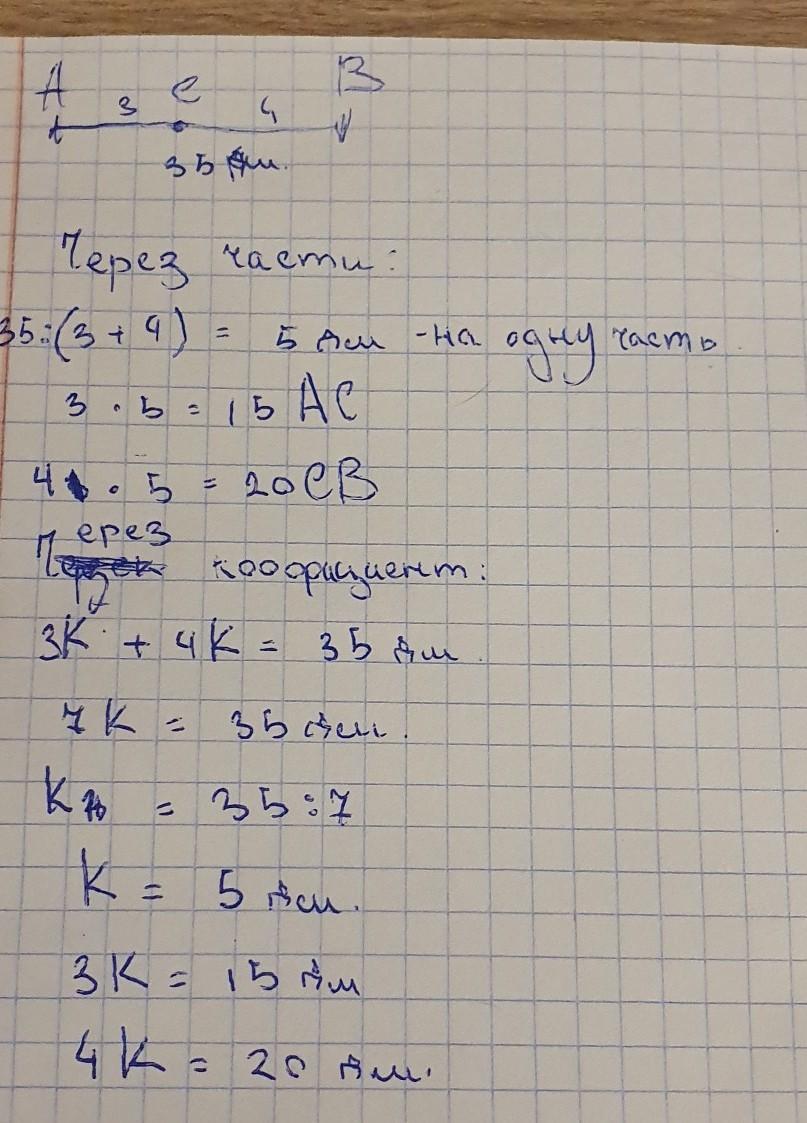 А С В
3 4
35 дм.
Через части:
35:(3 + 4) = 5 дм - на одну часть
3 · 5 = 15 АС
4 · 5 = 20 СВ
Через
кооофициент:
3К + 4К = 35 дм.
7К = 35 дм.
К = 35:7
К = 5 дм.
3К = 15 дм
4К = 20 дм.